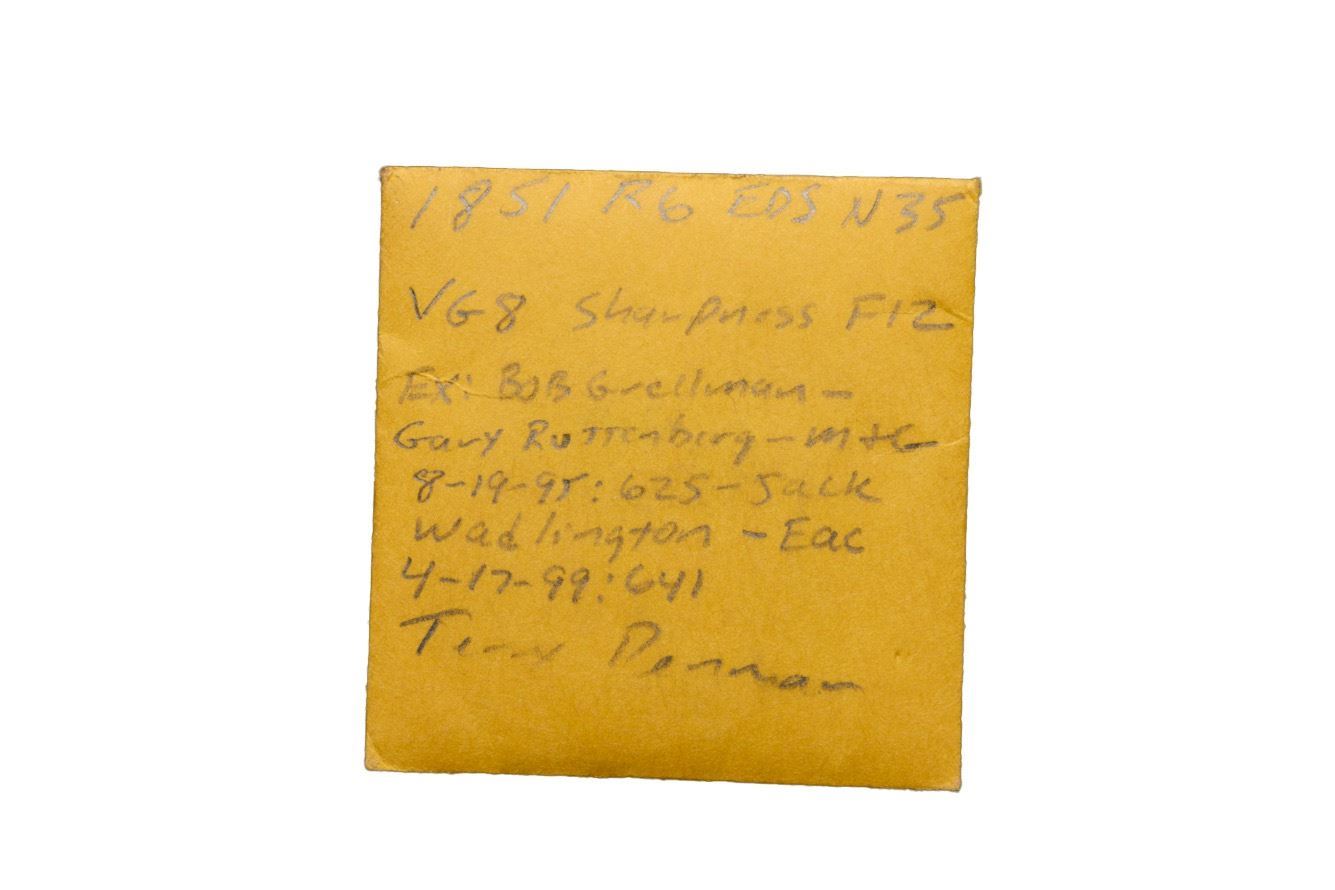 1851 R6 EDS N35
VG8 Sharpness F12
Ex: BOB Grellman -
Gary Ruttenberg - M+G
8-19-95: 625 - Jack
Wadlington - Eac
4-17-99: 641
Terry Denman